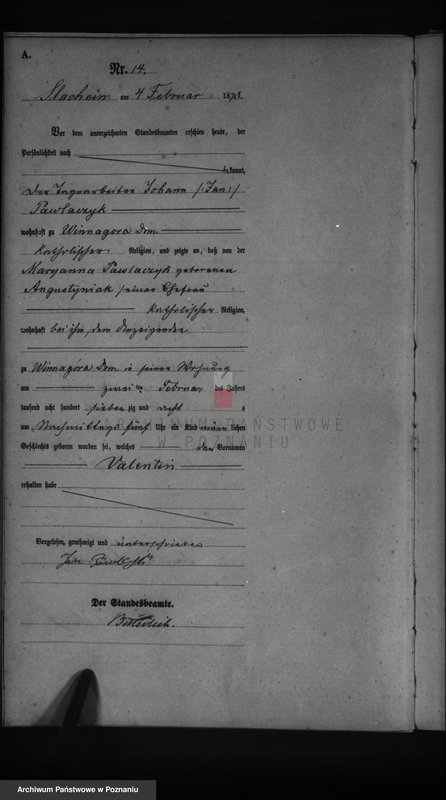 A.
Nr. 14.
am 4 Februar 1878.
Vor dem unterzeichneten Standesbeamten erschien heute, der
Persönlichkeit nach
bekannt,
der Tagearbeiter Johann /:Jan:/
Pawlaczyk
wohnhaft zu Winnagora Dom.
katholischer Religion, und zeigte an, daß von der
Maryanna Pawlaczyk geborenen
Augustyniak seiner Ehefrau
katholischer Religion,
wohnhaft bei ihm, dem Anzeigenden
zu Winnagóra Dom. in seiner Wohnung
am zwei ten Februar des Jahres
tausend acht hundert sieben zig und acht
um Nachmittags fünf Uhr ein Kind männ lichen
Geschlechts geboren worden sei, welches den Vornamen
Valentin
erhalten habe
Vorgelesen, genehmigt und unterschrieben
Jan
Der Standesbeamte.
ARCHIWUM PAŃSTWOWE
W POZNANIU
Archiwum Państwowe w Poznaniu